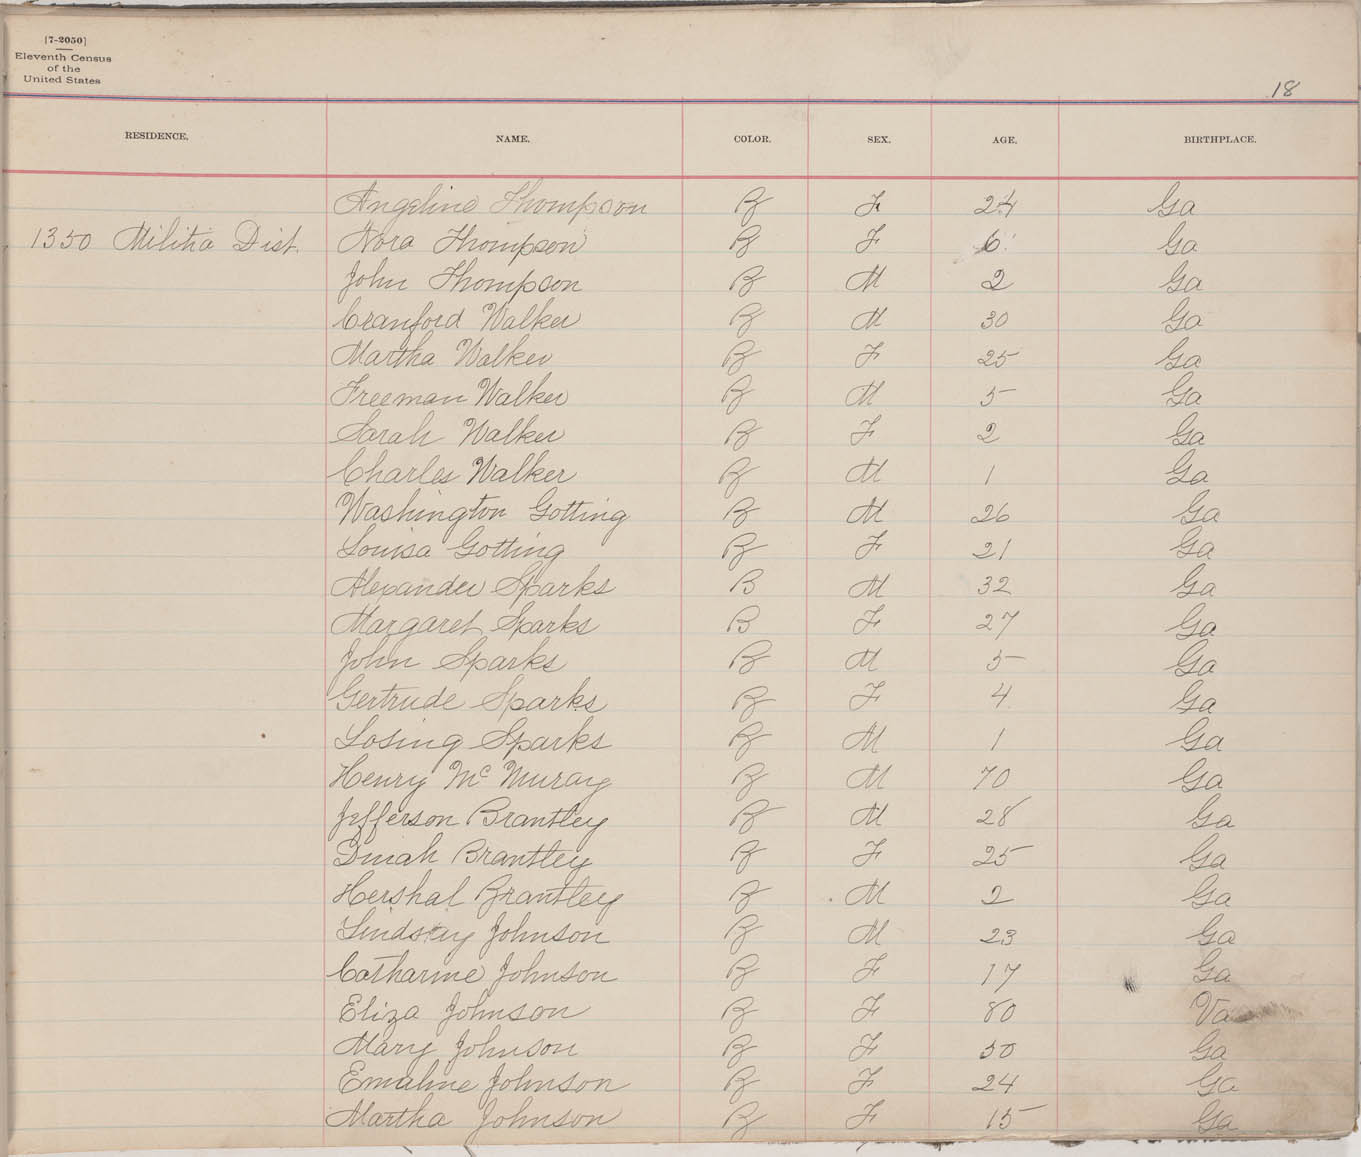 [7-2050]
Eleventh Census
of the
United States
18
RESIDENCE. NAME. COLOR. SEX. AGE. BIRTHPLACE.
Angeline Thompson B F 24 Ga
1350 Militia Dist. Nora Thompson B F 6 Ga
John Thompson B M 2 Ga
Cranford Walker B M 30 Ga
Martha Walker B F 25 Ga
Freeman Walker B M 5 Ga
Sarah Walker B F 2 Ga
Charles Walker B M 1 Ga
Washington Gotting B M 26 Ga
Louisa Gotting B F 21 Ga
Alexander Sparks B M 32 Ga
Margaret Sparks B F 27 Ga
John Sparks B M 5 Ga
Gertrude Sparks B F 4 Ga
Losing Sparks B M 1 Ga
Henry Mc Muray B M 70 Ga
Jefferson Brantley B M 28 Ga
Dinah Brantley B F 25 Ga
Hershal Brantley B M 2 Ga
Lindsey Johnson B M 23 Ga
Catharine Johnson B F 17 Ga
Eliza Johnson B F 80 Va
Mary Johnson B F 50 Ga
Emaline Johnson B F 24 Ga
Martha Johnson B F 15 Ga